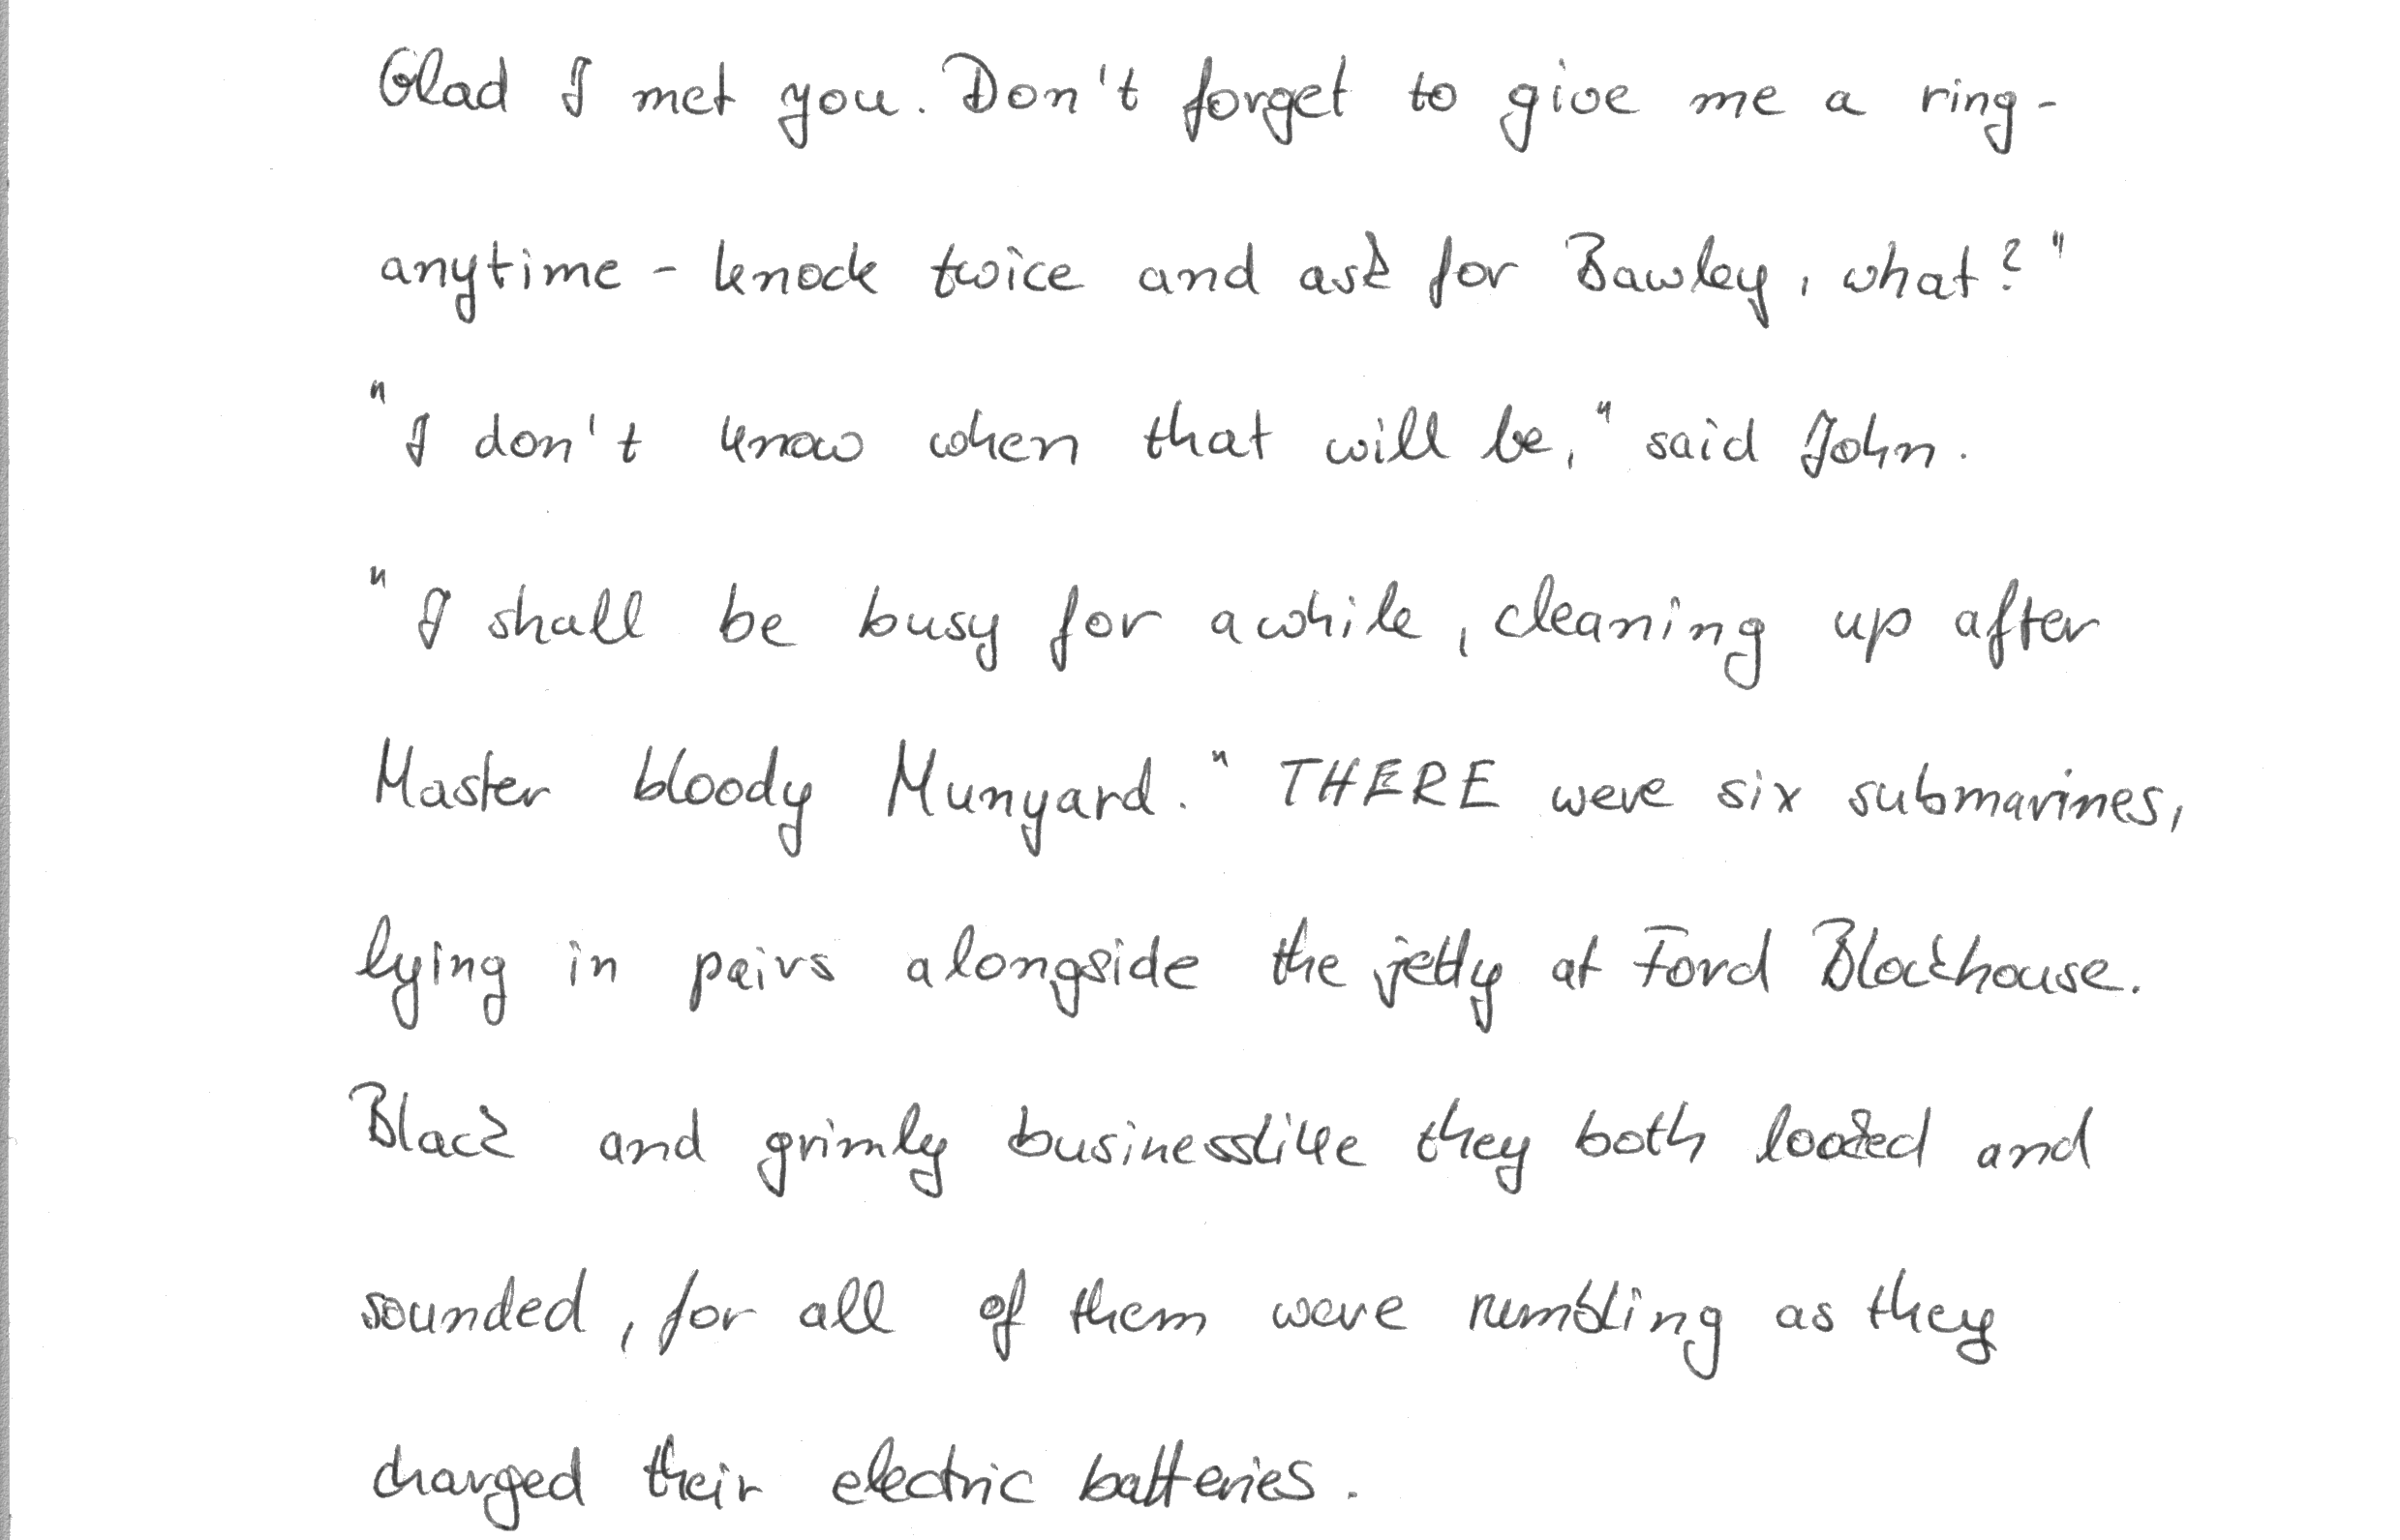 Glad I met you. Don't forget to give me a ring -
anytime - knock twice and ask for Bawley, what?"
"I don't know when that will be," said John.
"I shall be busy for awhile, cleaning up after
Master bloody Munyard." THERE were six submarines,
lying in pairs alongside the jetty at Ford Blockhouse.
Black and grimly businesslike they both looked and
sounded, for all of them were rumbling as they
charged their electric batteries.